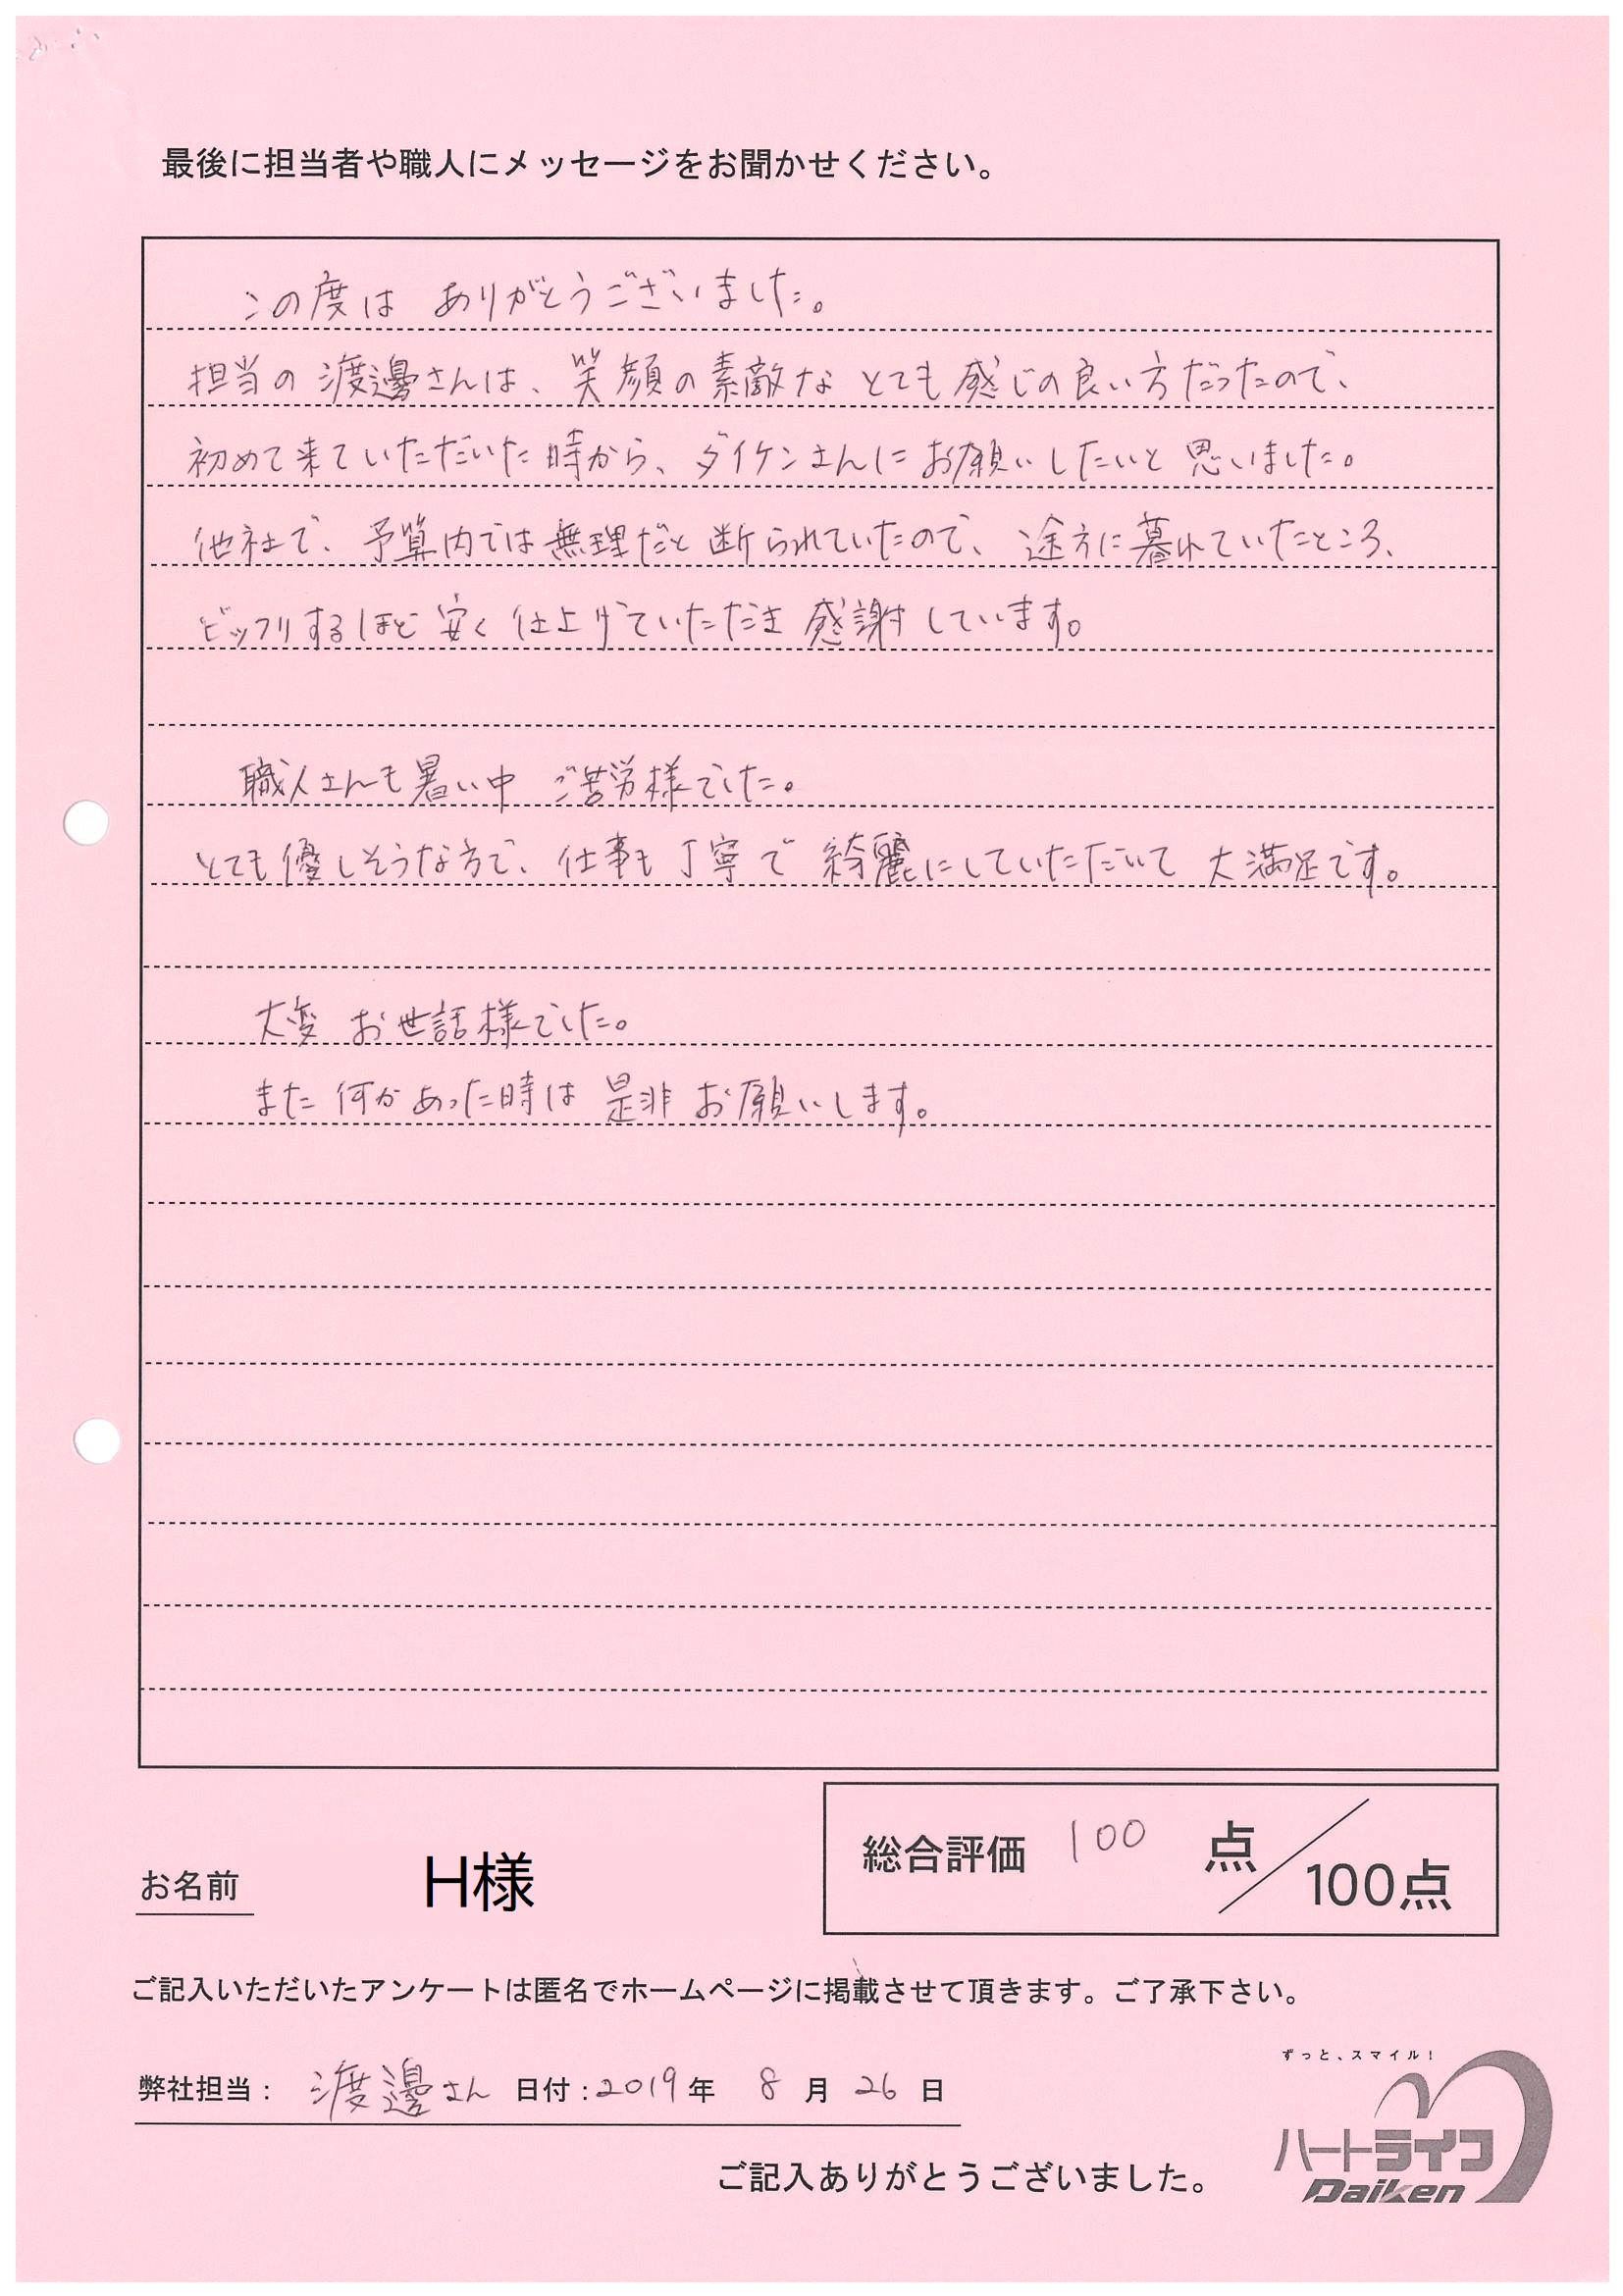 最後に担当者や職人にメッセージをお聞かせください。
この度は ありがとうございました。
担当の 渡邊さんは、笑顔の素敵な とても感じの良い方だったので、
初めて来ていただいた時から、ダイケンさんに お願いしたいと 思いました。
他社で、予算内では無理だと 断られていたので、途方に暮れていたところ、
ビックリするほど 安く 仕上げていただき 感謝しています。
職人さんも暑い中 ご苦労様でした。
とても優しそうな方で、仕事も 丁寧で 綺麗にしていただいて 大満足です。
大変 お世話様でした。
また 何かあった時は 是非 お願いします。
総合評価 100 点/100点
お名前 H様
ご記入いただいたアンケートは匿名でホームページに掲載させて頂きます。ご了承下さい。
弊社担当： 渡邊さん 日付：2019年 8月 26日
ずっと、スマイル！
ハートライフ
Daiken
ご記入ありがとうございました。